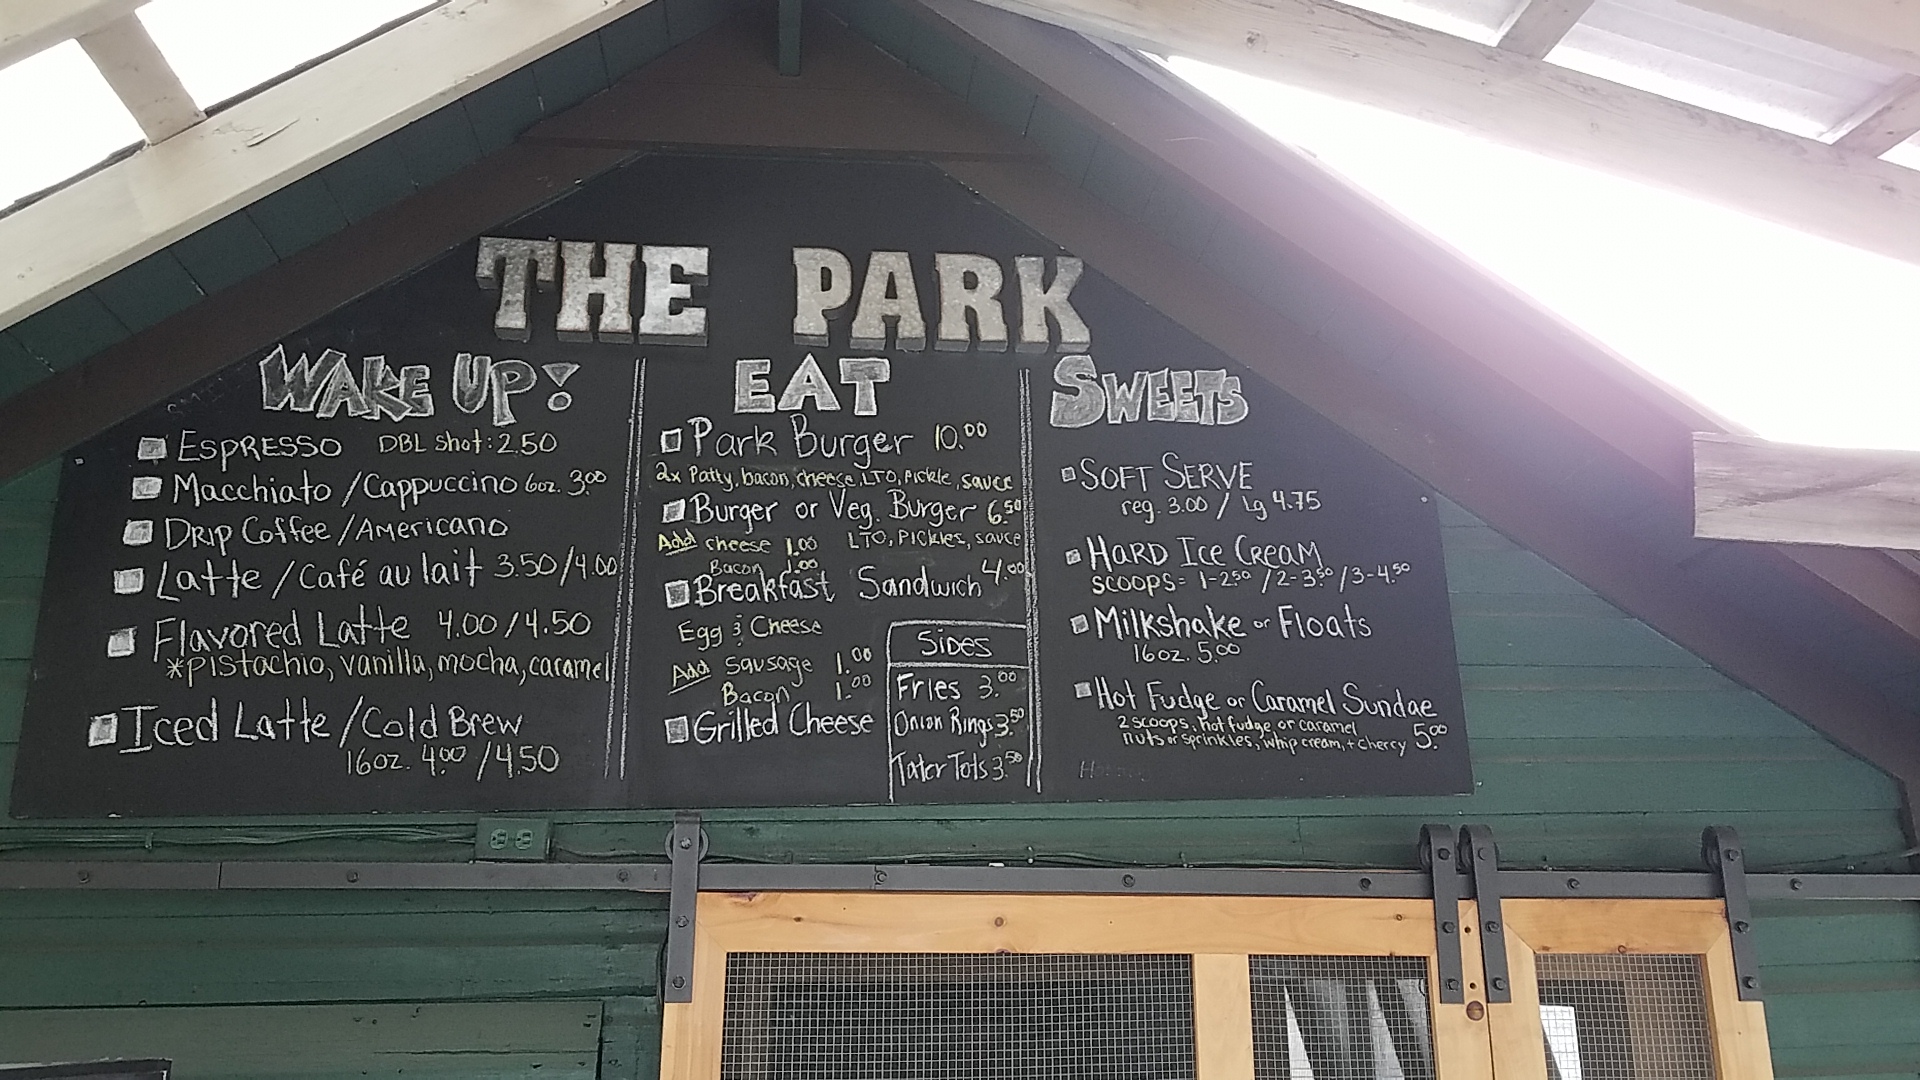 THE PARK
WAKE UP!
ESPRESSO DBL shot: 2.50
Macchiato / Cappuccino 6oz. 3.00
DRIP COFFEE / AMERICANO
Latte / Café au lait 3.50/4.00
Flavored Latte 4.00/4.50
*pistachio, vanilla, mocha, caramel
Iced Latte / Cold Brew
16oz. 4.00 / 4.50
EAT
Park Burger 10.00
2x Patty, bacon, cheese, LTO, pickle, sauce
Burger or Veg. Burger 6.50
Add cheese 1.00 LTO, Pickles, sauce
Bacon 1.00
Breakfast Sandwich 4.00
Egg & Cheese
Add sausage 1.00
Bacon 1.00
Grilled Cheese
Sides
Fries 3.00
Onion Rings 3.50
Tater Tots 3.50
SWEETS
SOFT SERVE
reg. 3.00 / Lg 4.75
HARD ICE CREAM
SCOOPS= 1-2.50 / 2-3.50 / 3-4.50
Milkshake or Floats
16oz. 5.00
Hot Fudge or Caramel Sundae
2 scoops, hot fudge or caramel
nuts or sprinkles, whip cream, + cherry 5.00